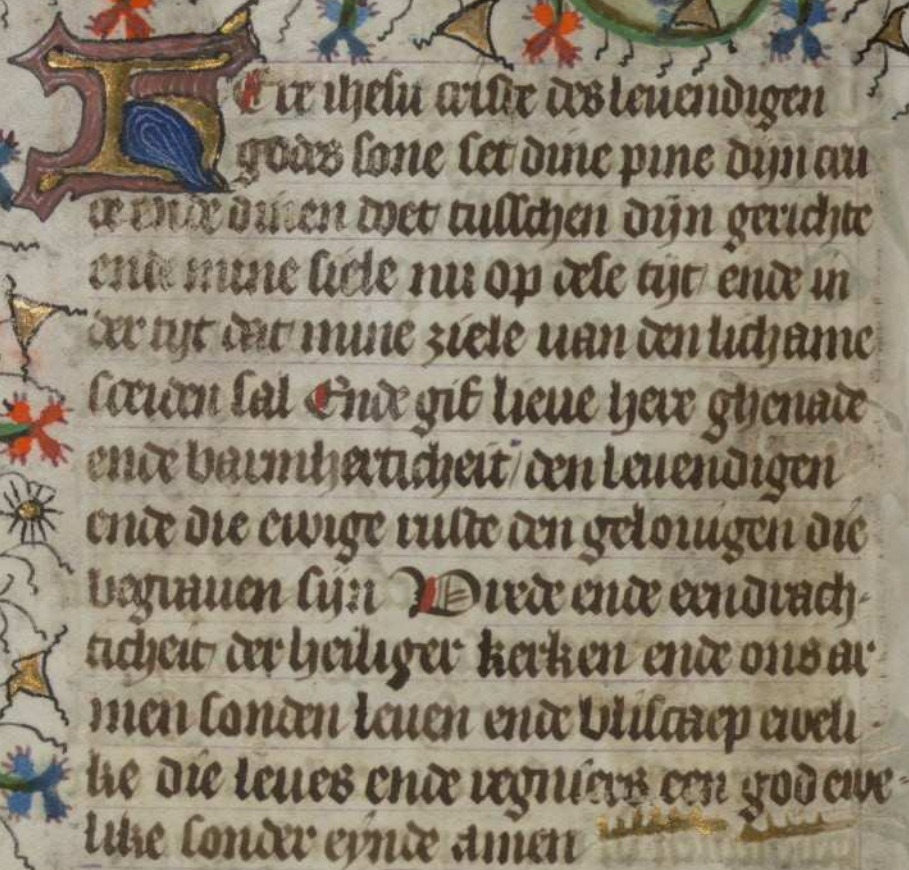 HEre ihesu criste des leuendigen
godes sone set dine pine dijn cru
ce ende dinen doet tusschen dijn gerichte
ende mine siele nu op dese tijt/ ende in
der tijt dat mine ziele uan den lichame
sceiden sal Ende gif lieue here ghenade
ende barmherticheit/ den leuendigen
ende die ewige ruste den gelouigen die
begrauen sijn Vrede ende eendrach-
ticheit der heiliger kerken ende ons ar
men sonden leuen ende bliscaep eweli-
ke die leues ende regnieres een god ewe-
like sonder eynde amen